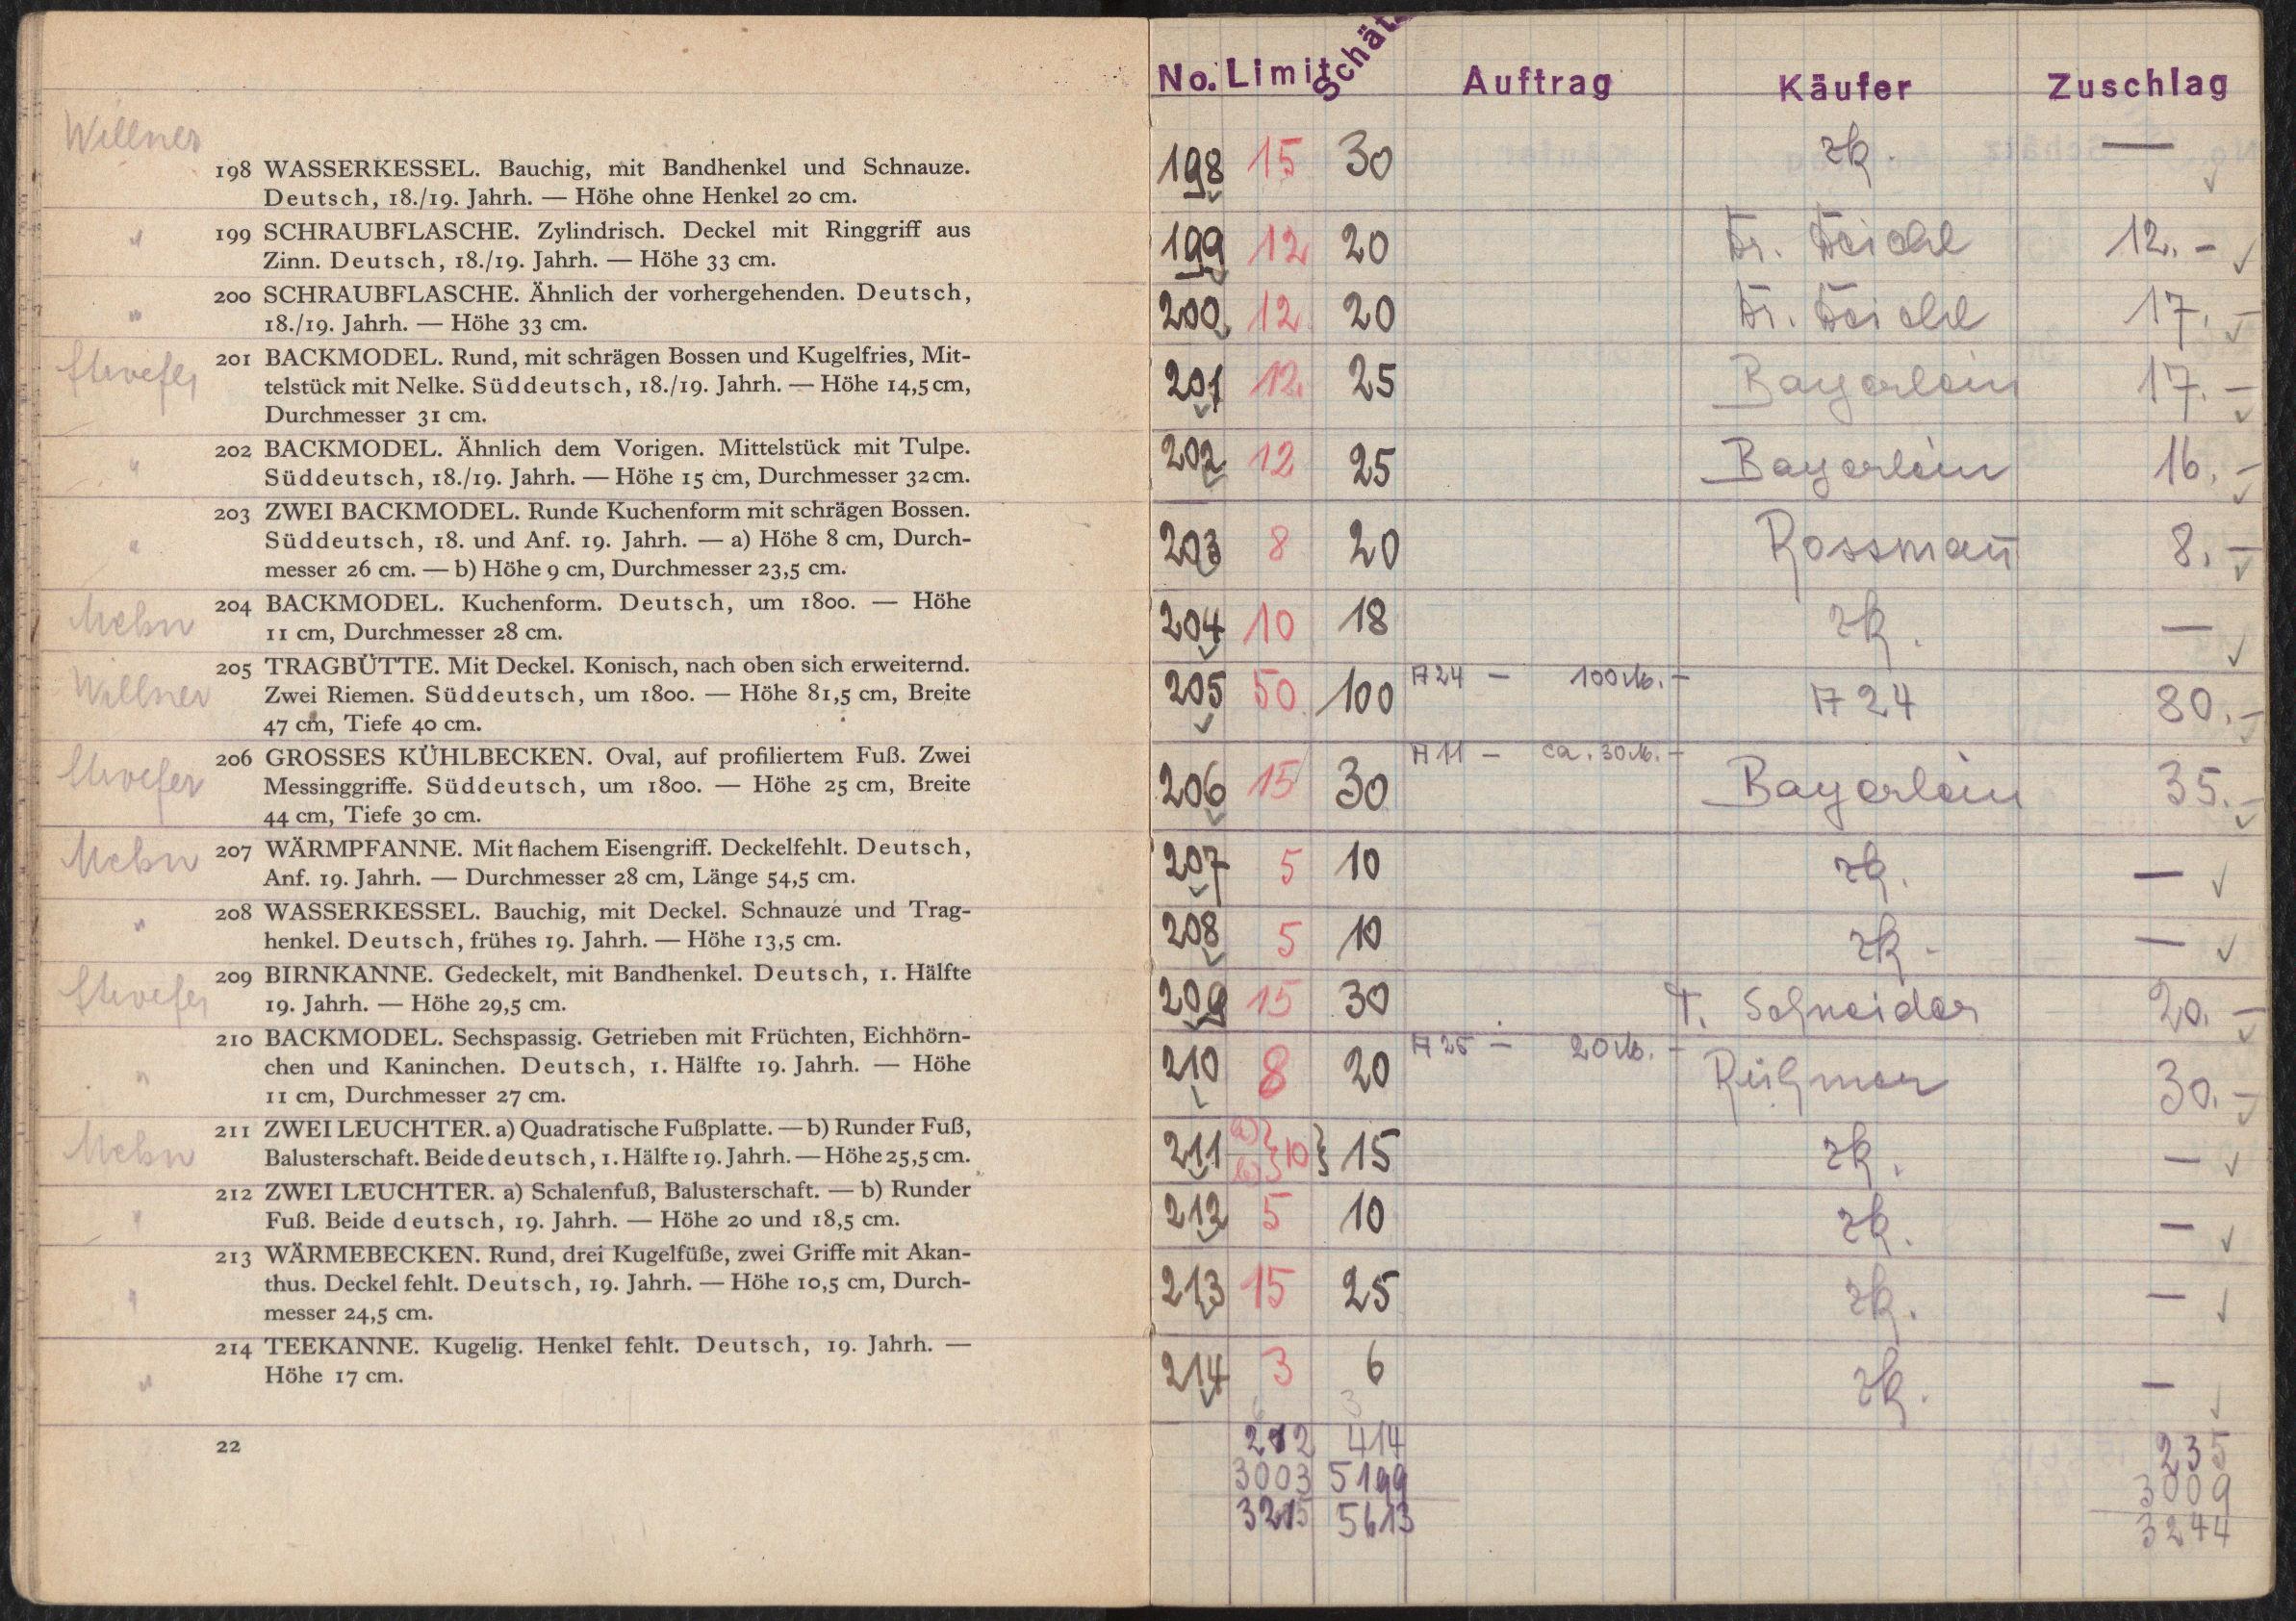 Willner
198 WASSERKESSEL. Bauchig, mit Bandhenkel und Schnauze.
Deutsch, 18./19. Jahrh. — Höhe ohne Henkel 20 cm.
" 199 SCHRAUBFLASCHE. Zylindrisch. Deckel mit Ringgriff aus
Zinn. Deutsch, 18./19. Jahrh. — Höhe 33 cm.
" 200 SCHRAUBFLASCHE. Ähnlich der vorhergehenden. Deutsch,
18./19. Jahrh. — Höhe 33 cm.
201 BACKMODEL. Rund, mit schrägen Bossen und Kugelfries, Mit-
telstück mit Nelke. Süddeutsch, 18./19. Jahrh. — Höhe 14,5 cm,
Durchmesser 31 cm.
" 202 BACKMODEL. Ähnlich dem Vorigen. Mittelstück mit Tulpe.
Süddeutsch, 18./19. Jahrh. — Höhe 15 cm, Durchmesser 32 cm.
" 203 ZWEI BACKMODEL. Runde Kuchenform mit schrägen Bossen.
Süddeutsch, 18. und Anf. 19. Jahrh. — a) Höhe 8 cm, Durch-
messer 26 cm. — b) Höhe 9 cm, Durchmesser 23,5 cm.
204 BACKMODEL. Kuchenform. Deutsch, um 1800. — Höhe
11 cm, Durchmesser 28 cm.
205 TRAGBÜTTE. Mit Deckel. Konisch, nach oben sich erweiternd.
Willner Zwei Riemen. Süddeutsch, um 1800. — Höhe 81,5 cm, Breite
47 cm, Tiefe 40 cm.
206 GROSSES KÜHLBECKEN. Oval, auf profiliertem Fuß. Zwei
Messinggriffe. Süddeutsch, um 1800. — Höhe 25 cm, Breite
44 cm, Tiefe 30 cm.
207 WÄRMPFANNE. Mit flachem Eisengriff. Deckel fehlt. Deutsch,
Anf. 19. Jahrh. — Durchmesser 28 cm, Länge 54,5 cm.
" 208 WASSERKESSEL. Bauchig, mit Deckel. Schnauze und Trag-
henkel. Deutsch, frühes 19. Jahrh. — Höhe 13,5 cm.
209 BIRNKANNE. Gedeckelt, mit Bandhenkel. Deutsch, 1. Hälfte
19. Jahrh. — Höhe 29,5 cm.
" 210 BACKMODEL. Sechspassig. Getrieben mit Früchten, Eichhörn-
chen und Kaninchen. Deutsch, 1. Hälfte 19. Jahrh. — Höhe
11 cm, Durchmesser 27 cm.
211 ZWEI LEUCHTER. a) Quadratische Fußplatte. — b) Runder Fuß,
Balusterschaft. Beide deutsch, 1. Hälfte 19. Jahrh. — Höhe 25,5 cm.
" 212 ZWEI LEUCHTER. a) Schalenfuß, Balusterschaft. — b) Runder
Fuß. Beide deutsch, 19. Jahrh. — Höhe 20 und 18,5 cm.
" 213 WÄRMEBECKEN. Rund, drei Kugelfüße, zwei Griffe mit Akan-
thus. Deckel fehlt. Deutsch, 19. Jahrh. — Höhe 10,5 cm, Durch-
messer 24,5 cm.
" 214 TEEKANNE. Kugelig. Henkel fehlt. Deutsch, 19. Jahrh. —
Höhe 17 cm.
22
No. Limit Schätz Auftrag Käufer Zuschlag
198 15 30 zk. —
199 12 20 12.-
200 12 20 17.-
201 12 25 Bayerlein 17.-
202 12 25 Bayerlein 16.-
203 8 20 Rossmañ 8.-
204 10 18 zk. —
205 50 100 A 24 — 100 M.- A 24 80.-
206 15 30 A 11 — ca. 30 M.- Bayerlein 35.-
207 5 10 zk. —
208 5 10 zk. —
209 15 30 T. Schneider 20.-
210 8 20 A 25 — 20 M.- 30.-
211 a) b) } 10 } 15 zk. —
212 5 10 zk. —
213 15 25 zk. —
214 3 6 zk. —
212 414 235
3003 5199 3009
3215 5613 3244